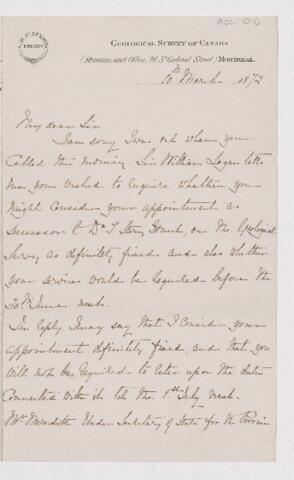 Acc. 10-6
GEOLOGICAL SURVEY OF CANADA
(Museum and Office, 76 St Gabriel Street) MONTREAL.
10th March 1872
My dear Sir
I am sorry I was out when you
called this morning. Sir William Logan tells
me you wished to enquire whether you
might consider your appointment as
successor to Dr T. Sterry Hunt, on the Geological
Survey, as definitely fixed and also whether
your services would be required before the
30th June next.
In reply, I may say that I consider your
appointment definitely fixed, and that you
will not be required to enter upon the duties
connected with it till the 1st July next.
Mr Meredith Under Secretary of State for the Provinces